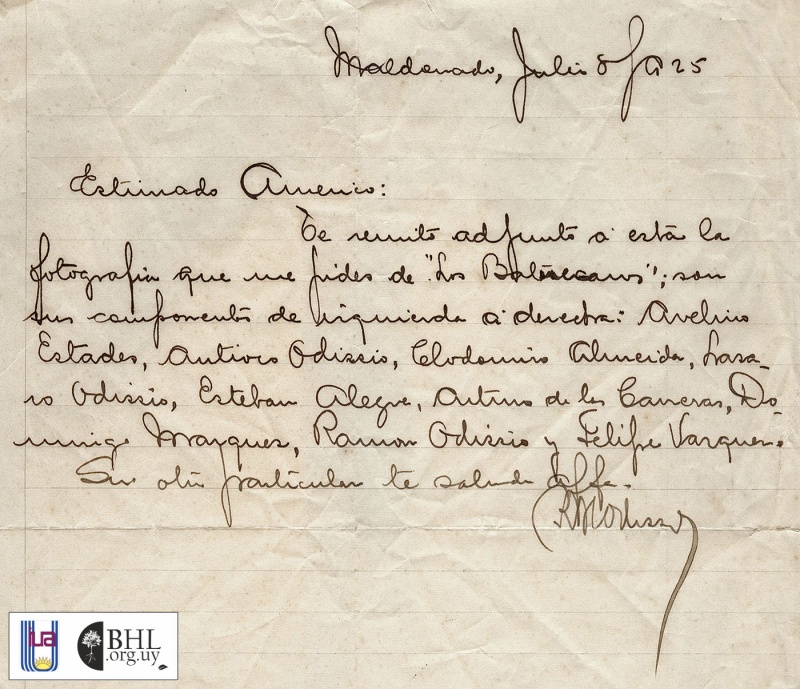 Maldonado, Julio 8/925
Estimado Americo:
Te remito adjunto a esta la
fotografia que me pides de "Los"; son
sus componentes de izquierda a derecha: Avelino
Estades, Antivio Odissio, Clodomiro Almeida, Lasa-
ro Odissio, Esteban Alegre, Arturo de las Carreras, Do-
mingo Marques, Ramon Odissio y Felipe Vazquez.
Sin otro particular te saluda
iua
BHL
.org.uy